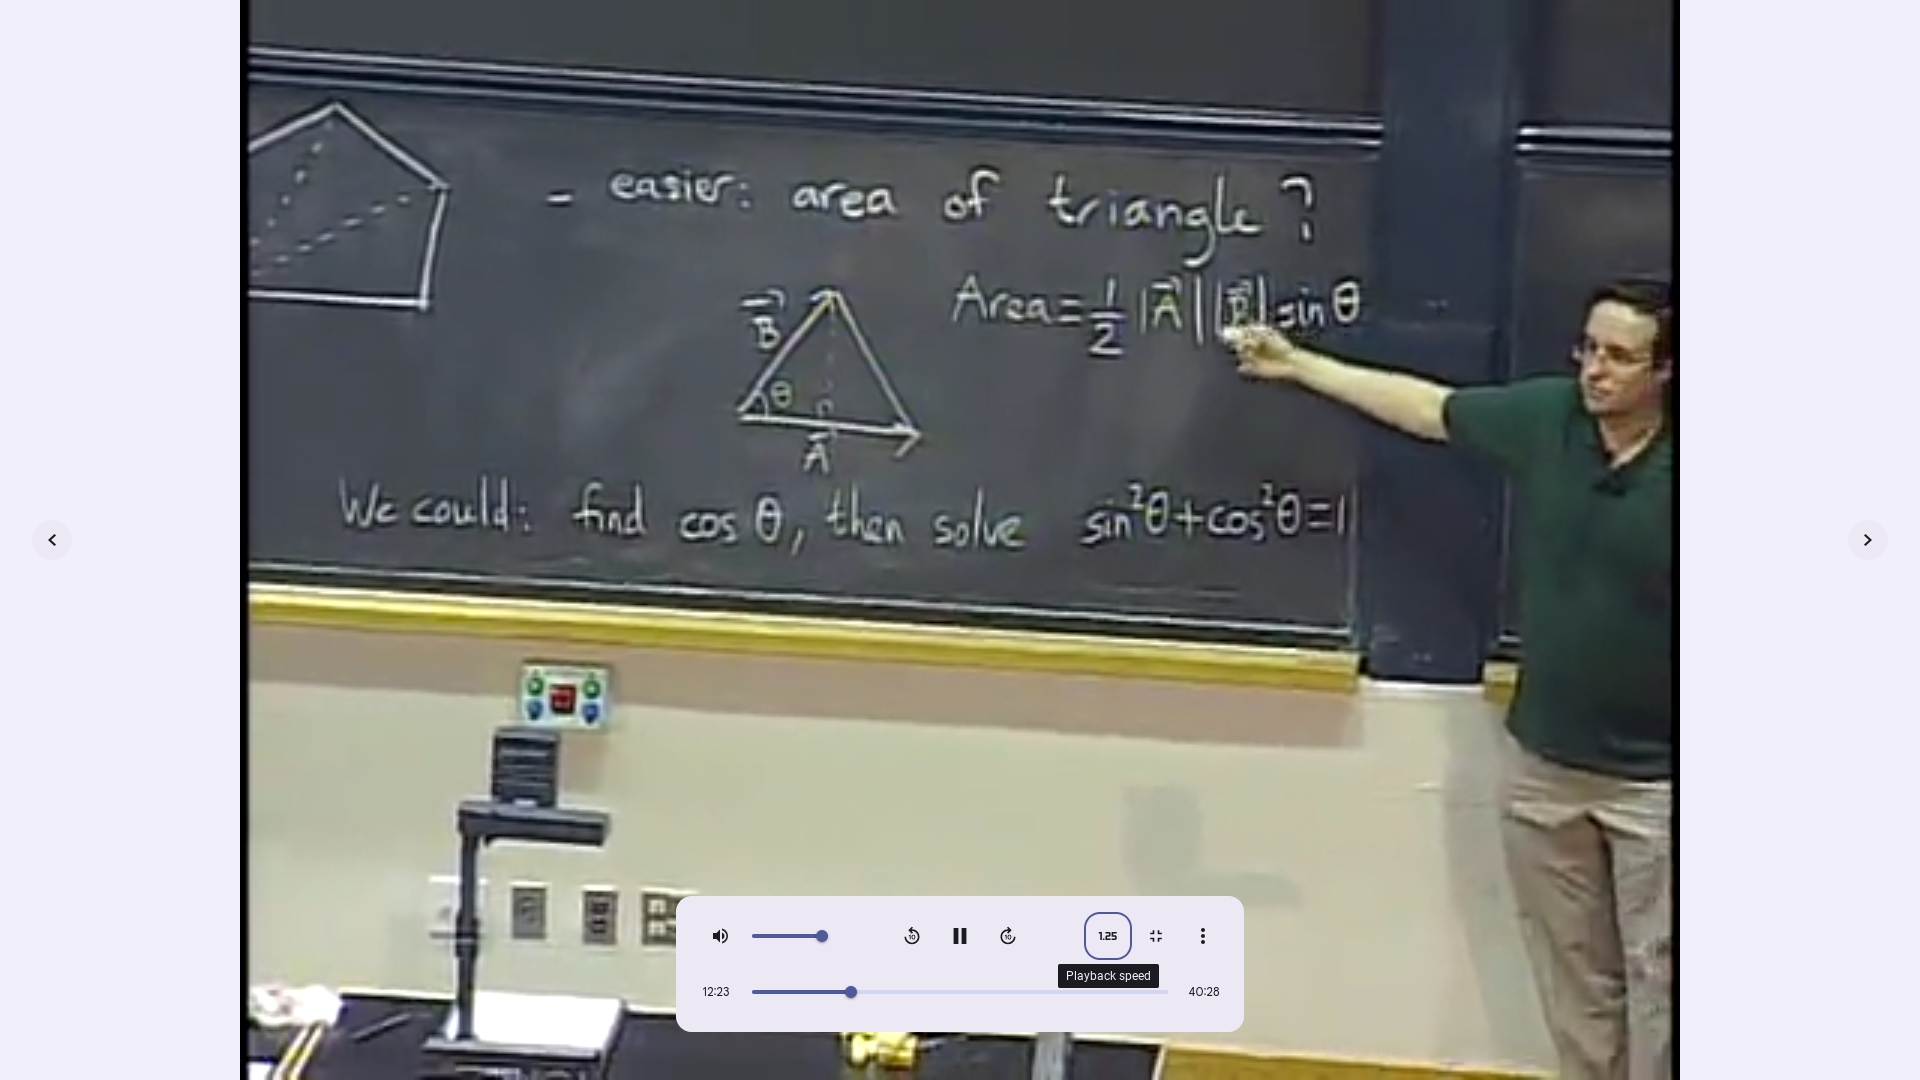 - easier: area of triangle?
Area = 1/2 |A| |B| sin θ
B
θ
A
We could: find cos θ, then solve sin²θ + cos²θ = 1
1.25
Playback speed
12:23
40:28